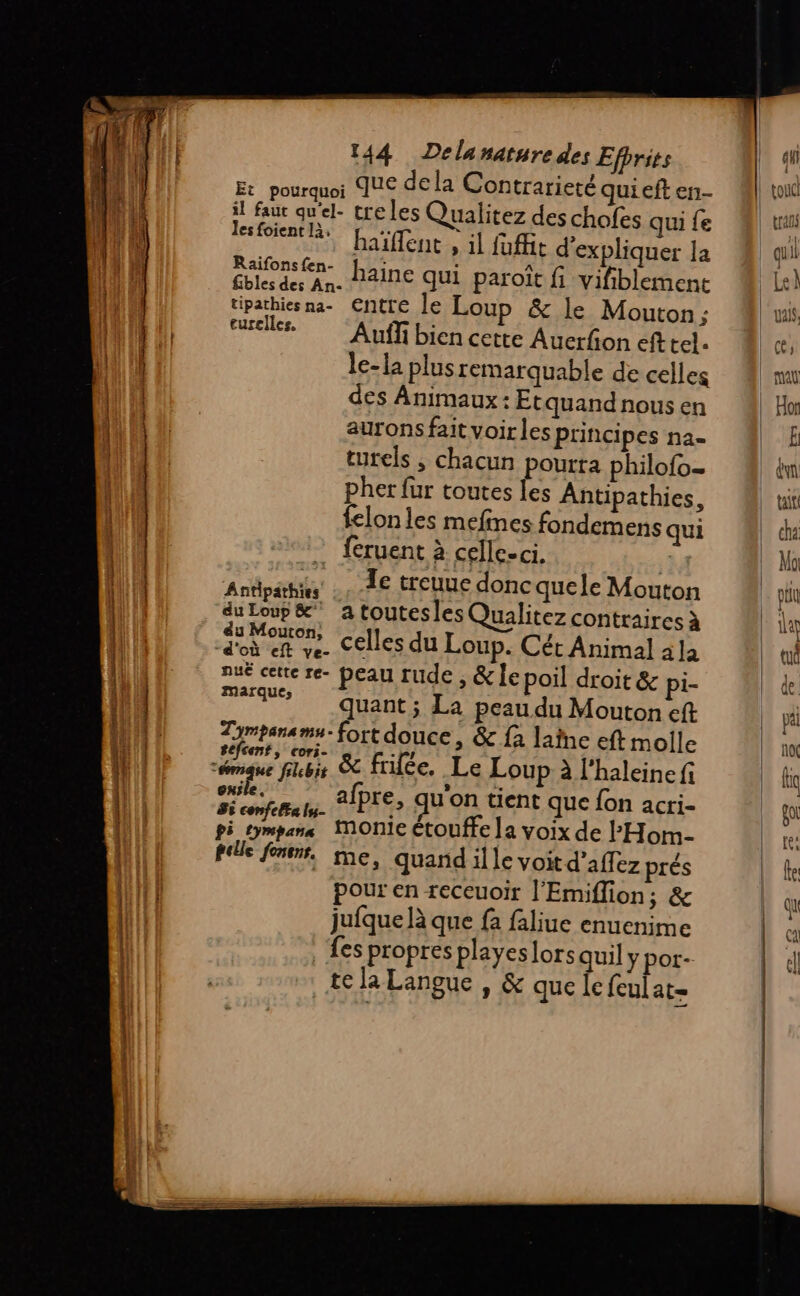 144 De la nature des Eſprits
que de la Contrarieté qui eſt en-
tre les Qualitez des choſes qui ſe
haïſſent , il ſuffit d'expliquer la
haine qui paroît ſi viſiblement
entre le Loup & le Mouton ;
Auſſi bien cette Auerſion eſt tel-
le-la plus remarquable de celles
des Animaux : Et quand nous en
aurons fait voir les principes na-
turels , chacun pourra philoſo-
pher ſur toutes les Antipathies,
ſelon les meſmes fondemens qui
ſeruent à celle-ci.
Ie treuue donc que le Mouton
a toutes les Qualitez contraires à
celles du Loup. Cét Animal a la
peau rude , & le poil droit & pi-
quant ; La peau du Mouton eſt
fort douce , & ſa laine eſt molle
& friſée. Le Loup à l'haleine ſi
aſpre, qu'on tient que ſon acri-
monie étouffe la voix de l'Hom-
me, quand il le voit d'aſſez prés
pour en receuoir l'Emiſſion ; &
juſque là que ſa ſaliue enuenime
ſes propres playes lors quil y por-
te la Langue , & que le ſeul at-
Et pourquoi
il faut qu'el-
les ſoient là.
Raiſons ſen-
ſibles des An-
tipathies na-
turelles.
Antipathies
du Loup &
du Mouton,
d'où eſt ve-
nuë cette re-
marque,
Tympana mu-
teſcent, cori-
filebit
exile.
Si confecta lu-
pi tympana
pelle ſonent.